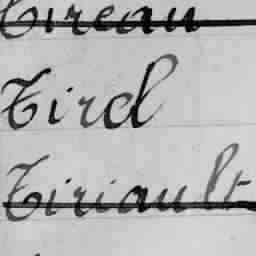 Tireau
Tird
Tiriault